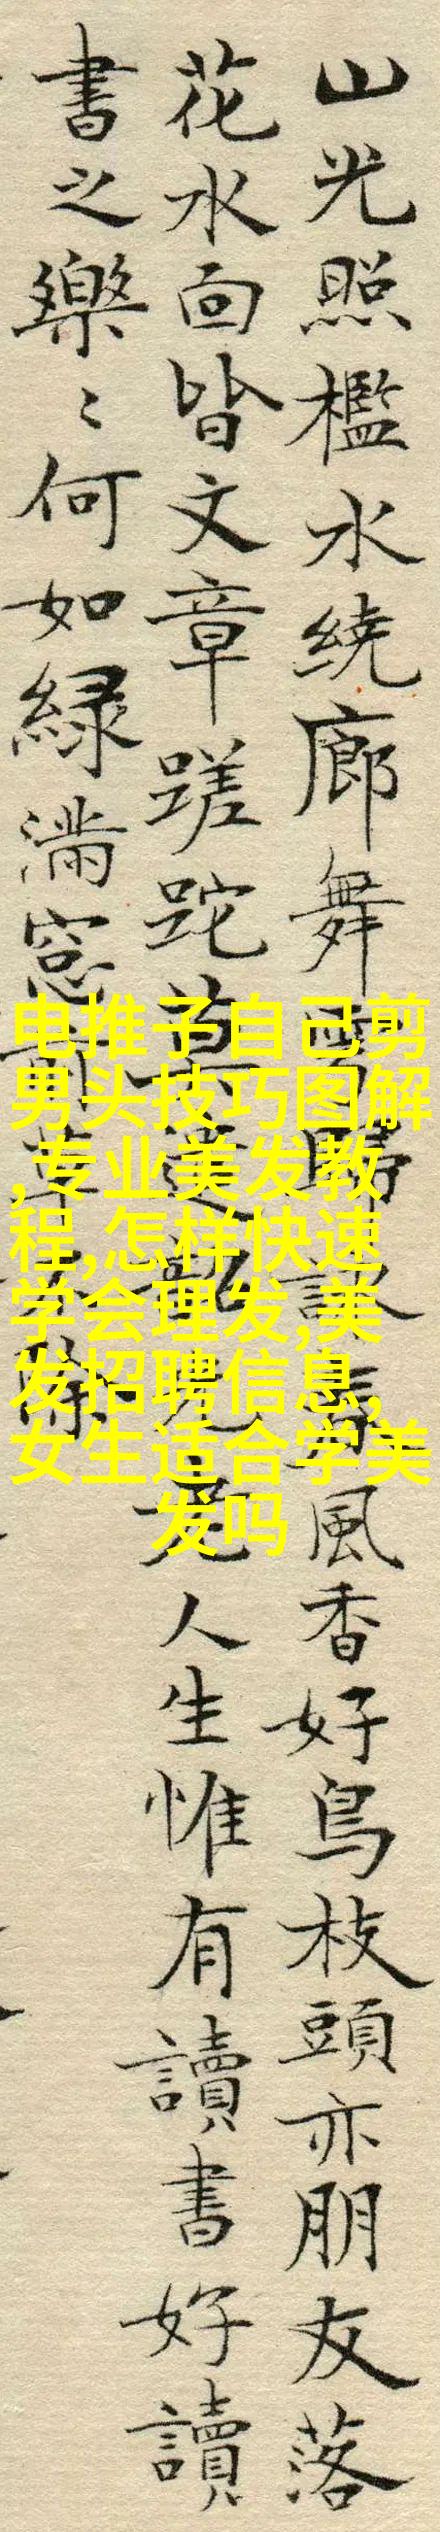 山光照檻水繞廊舞雩歸詠春風香好鳥枝頭亦朋友落
花水面皆文章蹉跎莫遣韶光老人生惟有讀書好讀
書之樂〻何如綠滿窓前草不除
电推子自己剪
男头技巧图解
,专业美发教
程,怎样快速
学会理发,美
发招聘信息,
女生适合学美
发吗